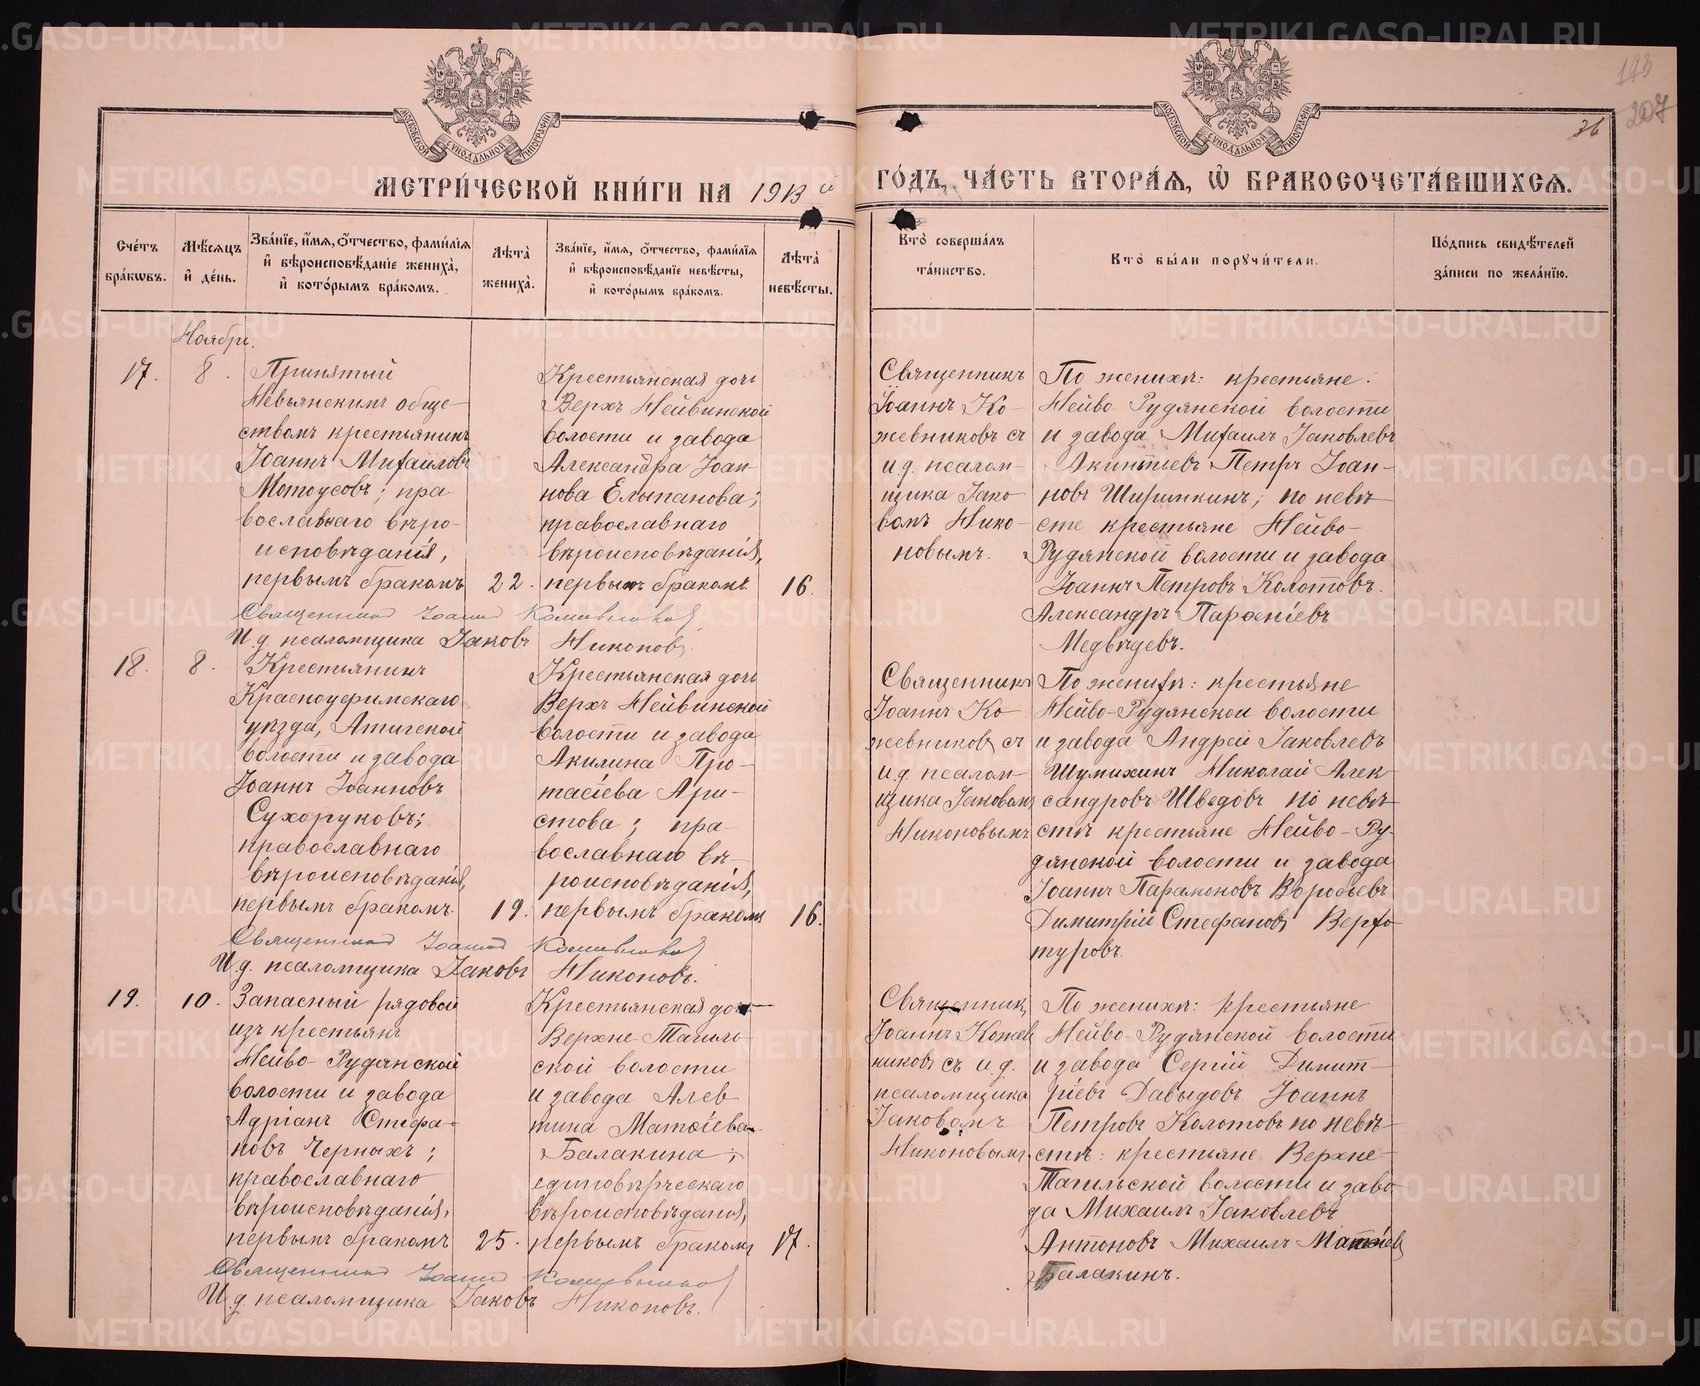 METRIKI.GASO-URAL.RU
МОСКОВСКОЙ СѴНОДАЛЬНОЙ ТИПОГРАФІИ
МОСКОВСКОЙ СѴНОДАЛЬНОЙ ТИПОГРАФІИ
207
36
МЕТРИ́ЧЕСКОЙ КНИ́ГИ НА 1913 й
ГО́ДЪ, ЧА́СТЬ ВТОРА́Я, Ѡ БРАКОСОЧЕТА́ВШИХСЯ.
Сче́тъ бра́кѡвъ.
Мѣ́сяцъ и҆ де́нь.
Зва́нїе, и҆́мя, ѻ҆́тчество, фами́лїя и҆ вѣроисповѣ́данїе жениха̀, и҆ кото́рымъ бра́комъ.
Лѣ́та̀ жениха̀.
Зва́нїе, и҆́мя, ѻ҆́тчество, фами́лїя и҆ вѣроисповѣ́данїе невѣ́сты, и҆ кото́рымъ бра́комъ.
Лѣ́та̀ невѣ́сты.
Кто̀ соверша́лъ та́инство.
Кто̀ бы́ли поручи́тели.
По́дпись свидѣ́телей за́писи по жела́нїю.
Ноябрь.
17.
8.
Принятый
Невьянскимъ обще-
ствомъ крестьянинъ
Іоаннъ Михаиловъ
Мотоусовъ; пра-
вославнаго вѣро-
исповѣданія,
первымъ бракомъ
22.
Крестьянская дочь
Верхъ-Нейвинской
волости и завода
Александра Іоан-
нова Елыпанова;
православнаго
вѣроисповѣданія,
первымъ бракомъ
16.
Священникъ
Іоаннъ Ко-
жевниковъ съ
и.д. псалом-
щика Іако-
вомъ Нико-
новымъ.
По женихѣ: крестьяне
Нейво-Рудянской волости
и завода Михаилъ Іаковлевъ
Акинтьевъ Петръ Іоан-
новъ Ширинкинъ; по невѣ-
стѣ крестьяне Нейво-
Рудянской волости и завода
Іоаннъ Петровъ Колотовъ.
Александръ Парѳеніевъ
Медвѣдевъ.
Священникъ Іоаннъ Кожевниковъ
И.д. псаломщика Іаковъ Никоновъ.
18.
8.
Крестьянинъ
Красноуфимскаго
уѣзда, Атигской
волости и завода
Іоаннъ Іоанновъ
Сухоруковъ;
православнаго
вѣроисповѣданія,
первымъ бракомъ.
19.
Крестьянская дочь
Верхъ-Нейвинской
волости и завода
Акилина Про-
тасіева Ари-
стова; пра-
вославнаго вѣ-
роисповѣданія,
первымъ бракомъ
16.
Священникъ
Іоаннъ Ко-
жевниковъ съ
и.д. псалом-
щика Іаковомъ
Никоновымъ
По женихѣ: крестьяне
Нейво-Рудянской волости
и завода Андрей Іаковлевъ
Шумихинъ Николай Алек
сандровъ Шведовъ по невѣ-
стѣ крестьяне Нейво-Ру-
дянской волости и завода
Іоаннъ Парамоновъ Воробьевъ
Димитрій Стефановъ Верхо-
туровъ.
Священникъ Іоаннъ Кожевниковъ
И.д. псаломщика Іаковъ Никоновъ.
19.
10.
Запасный рядовой
изъ крестьянъ
Нейво-Рудянской
волости и завода
Адріанъ Стефа-
новъ Черныхъ;
православнаго
вѣроисповѣданія,
первымъ бракомъ
25.
Крестьянская дочь
Верхне-Тагиль-
ской волости
и завода Алев
тина Матѳіева
Балакина;
единовѣрческаго
вѣроисповѣданія,
первымъ бракомъ
17.
Священникъ
Іоаннъ Кожев
никовъ съ и.д.
псаломщика
Іаковомъ
Никоновымъ.
По женихѣ: крестьяне
Нейво-Рудянской волости
и завода Сергій Димит-
ріевъ Давыдовъ Іоаннъ
Петровъ Колотовъ по невѣ-
стѣ: крестьяне Верхне-
Тагильской волости и заво-
да Михаилъ Іаковлевъ
Антоновъ Михаилъ Матѳіевъ
Балакинъ.
Священникъ Іоаннъ Кожевниковъ
И.д. псаломщика Іаковъ Никоновъ.